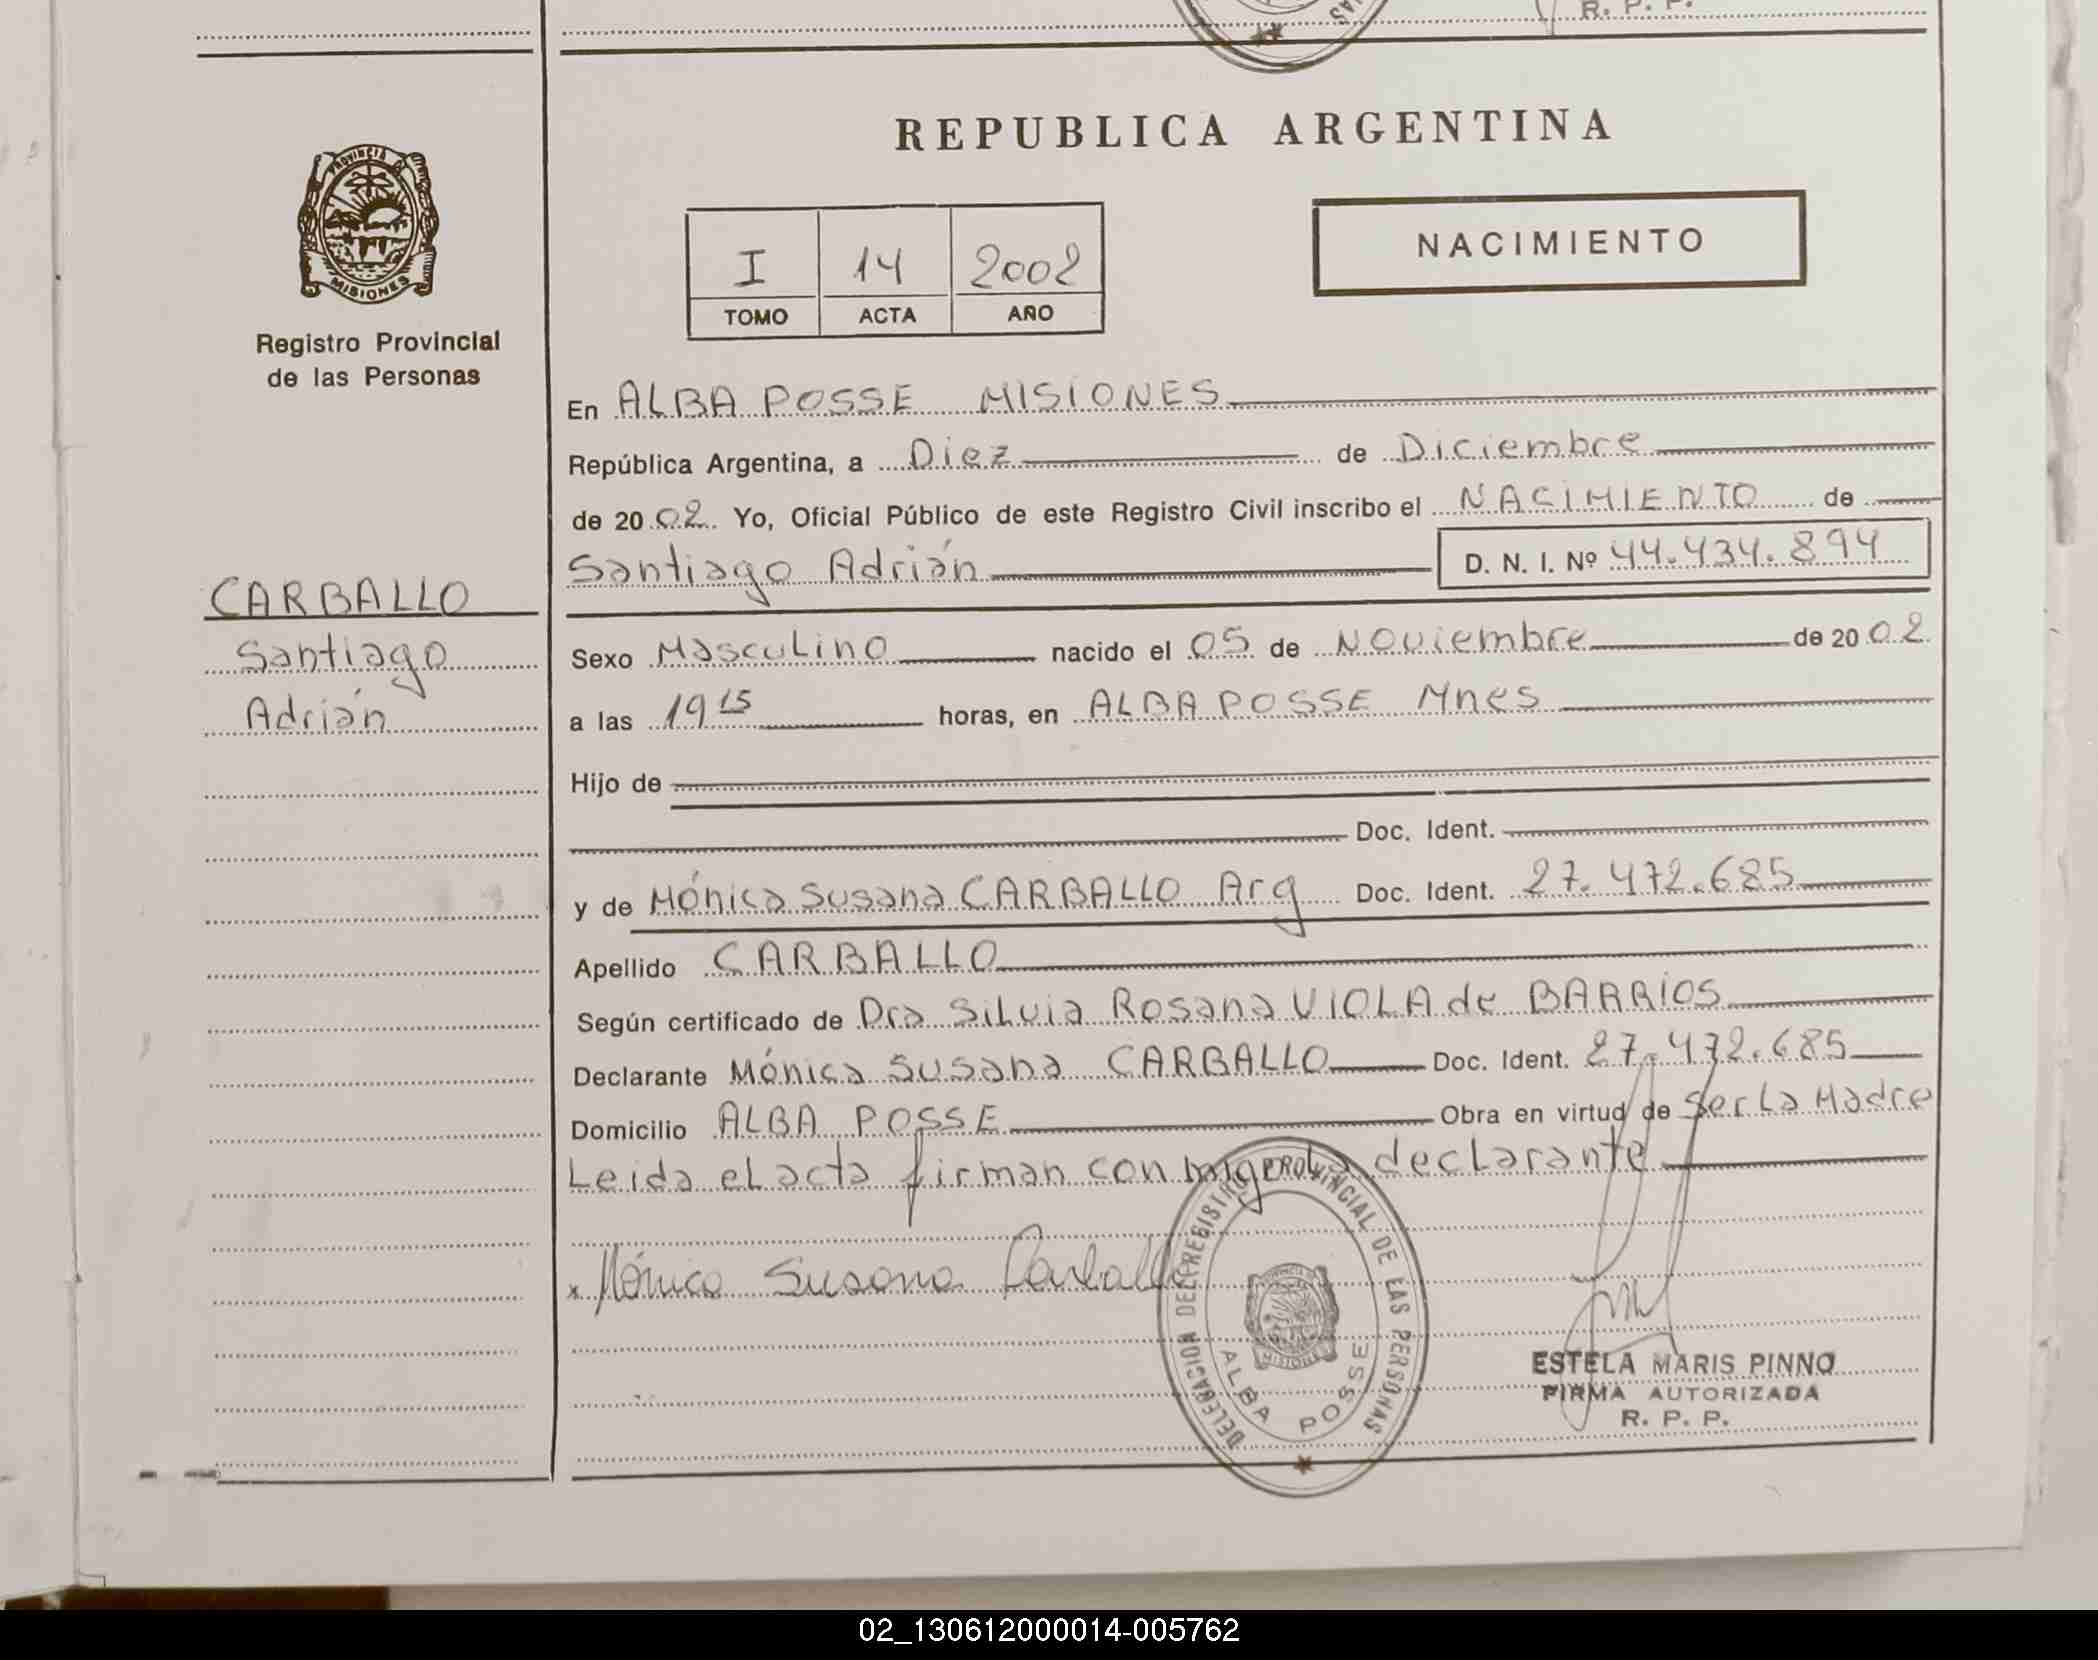 R. P. P.
REPUBLICA ARGENTINA
PROVINCIA DE
MISIONES
Registro Provincial
de las Personas
I 14 2002
TOMO ACTA AÑO
NACIMIENTO
En ALBA POSSE MISIONES
República Argentina, a Diez de Diciembre
de 2002 Yo, Oficial Público de este Registro Civil inscribo el NACIMIENTO de
Santiago Adrián D. N. I. Nº 44.434.894
CARBALLO
Santiago
Adrián
Sexo Masculino nacido el 05 de Noviembre de 2002
a las 19 15 horas, en ALBA POSSE Mnes
Hijo de
Doc. Ident.
y de Mónica Susana CARBALLO Arg Doc. Ident. 27.472.685
Apellido CARBALLO
Según certificado de Dra Silvia Rosana VIOLA de BARRIOS
Declarante Mónica Susana CARBALLO Doc. Ident. 27.472.685
Domicilio ALBA POSSE Obra en virtud de Ser La Madre
Leida el acta firman con migo la declarante
x Mónica Susana Carballo
DELEGACION DEL REGISTRO PROVINCIAL DE LAS PERSONAS
MISIONES
ALBA POSSE
ESTELA MARIS PINNO
FIRMA AUTORIZADA
R. P. P.
02_130612000014-005762